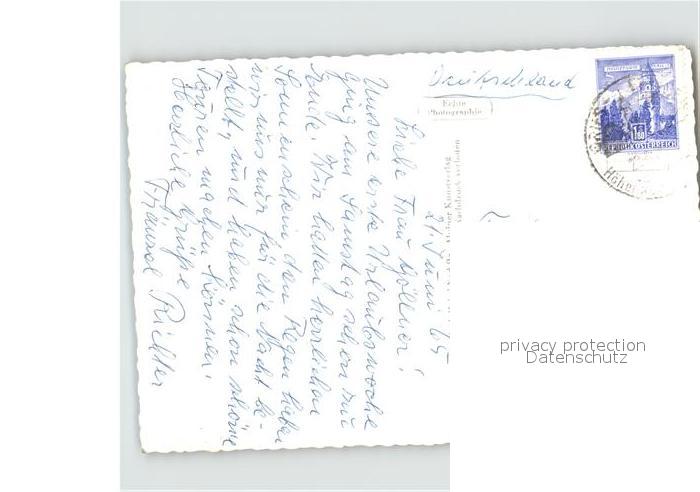 Deutschland
Echte
Photographie
REPUBLIK ÖSTERREICH
1.80
21. Juni 65
Liebe Frau Möllner!
Unsere erste Urlaubswoche
ging am Samstag schon zu
Ende. Wir hatten herrlichen
Sonnenschein den Regen haben
wir uns nur für die Nacht be-
stellt, und haben schon schöne
Touren machen können.
Herzliche Grüße
Fränzel Richter
Kunstverlag
Nachdruck verboten
privacy protection
Datenschutz